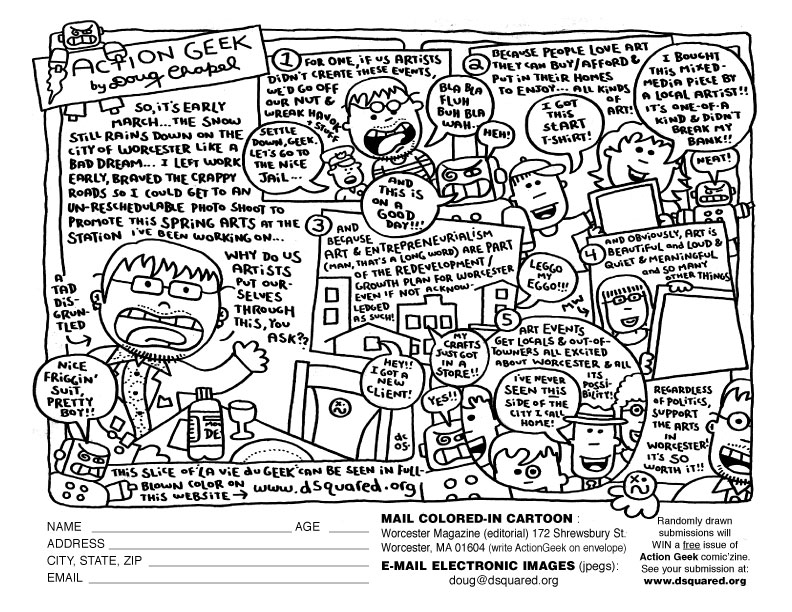 ACTION GEEK
by Doug Chapel
SO, IT'S EARLY
MARCH... THE SNOW
STILL RAINS DOWN ON THE
CITY OF WORCESTER LIKE A
BAD DREAM... I LEFT WORK
EARLY, BRAVED THE CRAPPY
ROADS SO I COULD GET TO AN
UN-RESCHEDULABLE PHOTO SHOOT TO
PROMOTE THIS SPRING ARTS AT THE
STATION I'VE BEEN WORKING ON...
A
TAD
DIS-
GRUN-
TLED
WHY DO US
ARTISTS
PUT OUR-
SELVES
THROUGH
THIS, YOU
ASK??
NICE
FRIGGIN'
SUIT,
PRETTY
BOY!!
MO
DE
1
FOR ONE, IF US ARTISTS
DIDN'T CREATE THESE EVENTS,
WE'D GO OFF
OUR NUT &
WREAK HAVOK
& STUFF
SETTLE
DOWN, GEEK.
LET'S GO TO
THE NICE
JAIL...
BLA BLA
FLUH
BUH BLA
WAH.
HEH!
AND
THIS IS
ON A
GOOD
DAY!!!
2
BECAUSE PEOPLE LOVE ART
THEY CAN BUY/AFFORD &
PUT IN THEIR HOMES
TO ENJOY... ALL KINDS
OF
ART!
I GOT
THIS
START
T-SHIRT!
I BOUGHT
THIS MIXED-
MEDIA PIECE BY
A LOCAL ARTIST!!
IT'S ONE-OF-A
KIND & DIDN'T
BREAK MY
BANK!!
NEAT!
3
AND
BECAUSE
ART & ENTREPRENEURIALISM
(MAN, THAT'S A LONG WORD) ARE PART
OF THE REDEVELOPMENT/
GROWTH PLAN FOR WORCESTER
EVEN IF NOT ACKNOW-
LEDGED
AS SUCH!
LEGGO
MY
EGGO!!!
MY
CRAFTS
JUST GOT
IN A
STORE!!
HEY!!
I GOT A
NEW
CLIENT!
4
AND OBVIOUSLY, ART IS
BEAUTIFUL and LOUD &
QUIET & MEANINGFUL
and SO MANY
OTHER THINGS
MW
5
ART EVENTS
GET LOCALS & OUT-OF-
TOWNERS ALL EXCITED
ABOUT WORCESTER & ALL
ITS
POSSI-
BILITY!
YES!!
I'VE NEVER
SEEN THIS
SIDE OF THE
CITY I CALL
HOME!
REGARDLESS
OF POLITICS,
SUPPORT
THE ARTS
IN
WORCESTER!
IT'S SO
WORTH IT!!
dc
05.
THIS SLICE OF 'LA VIE du GEEK' CAN BE SEEN IN FULL-
BLOWN COLOR ON
THIS WEBSITE → www.dsquared.org
NAME AGE
ADDRESS
CITY, STATE, ZIP
EMAIL
MAIL COLORED-IN CARTOON :
Worcester Magazine (editorial) 172 Shrewsbury St.
Worcester, MA 01604 (write ActionGeek on envelope)
E-MAIL ELECTRONIC IMAGES (jpegs):
doug@dsquared.org
Randomly drawn
submissions will
WIN a free issue of
Action Geek comic'zine.
See your submission at:
www.dsquared.org